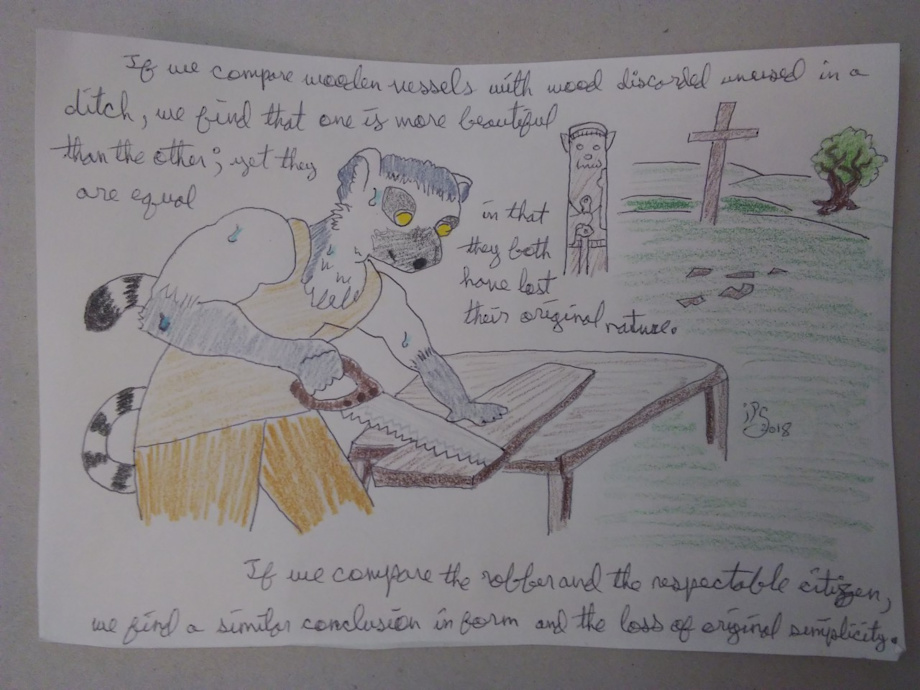 If we compare wooden vessels with wood discarded unused in a
ditch, we find that one is more beautiful
than the other; yet they
are equal
in that
they both
have lost
their original nature.
iPS
2018
If we compare the robber and the respectable citizen,
we find a similar conclusion in form and the loss of original simplicity.